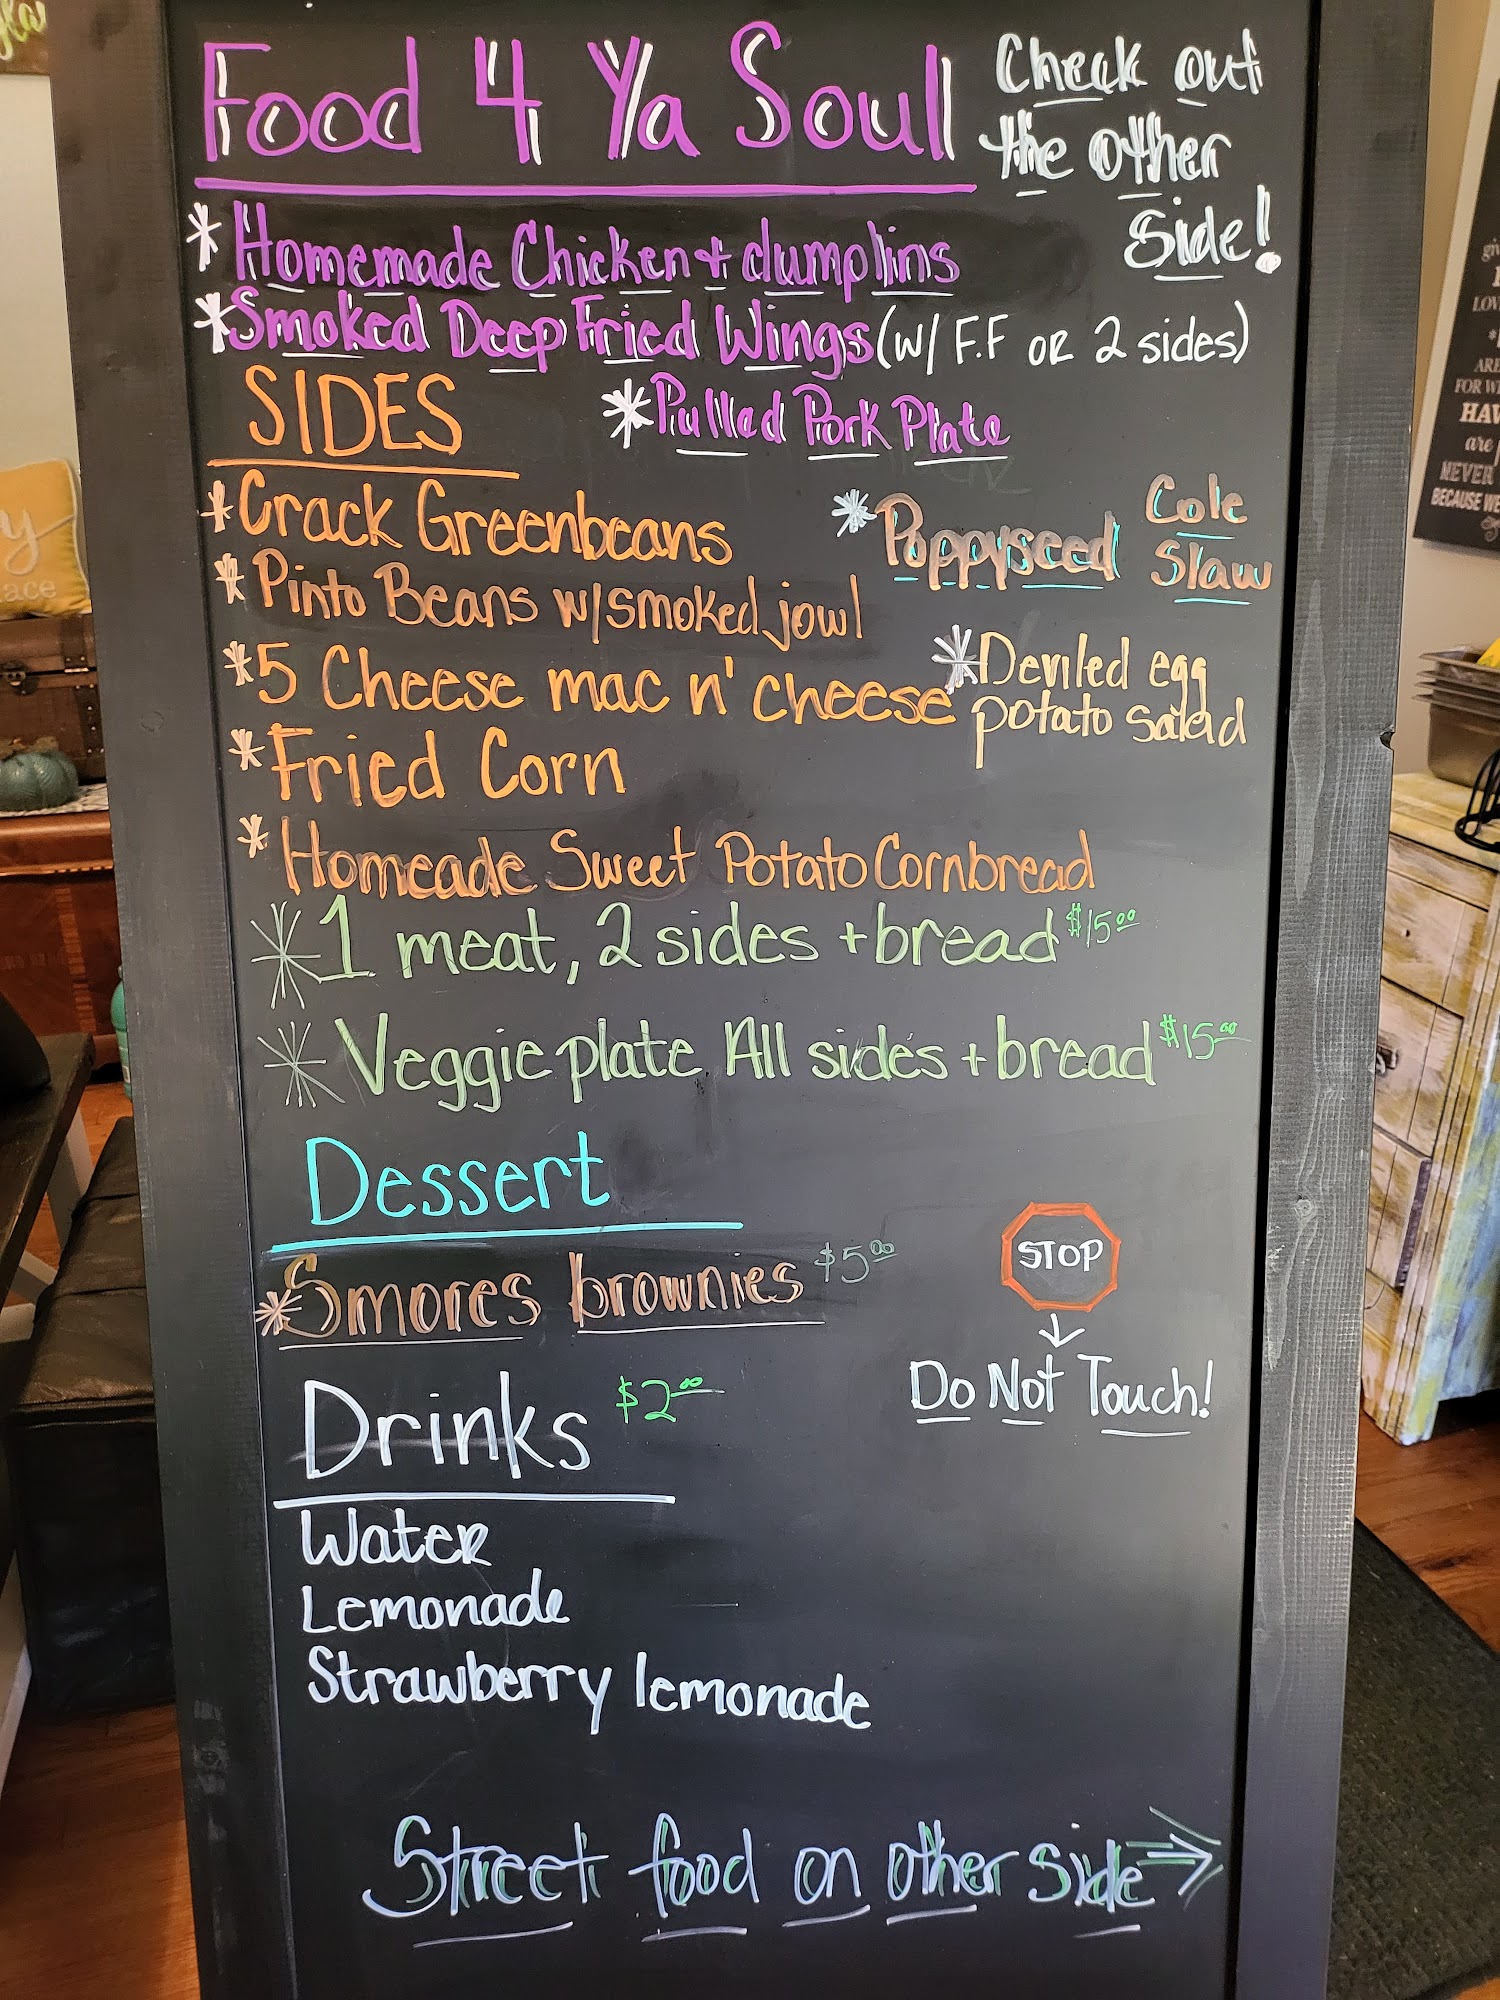 Food 4 Ya Soul
Check out
the other
side!
* Homemade Chicken + dumplins
* Smoked Deep Fried Wings (w/ F.F OR 2 sides)
* Pulled Pork Plate
SIDES
* Crack Greenbeans
* Poppyseed Cole Slaw
* Pinto Beans w/smoked jowl
* 5 Cheese mac n' cheese
* Deviled egg
potato salad
* Fried Corn
* Homeade Sweet Potato Cornbread
* 1 meat, 2 sides + bread $15.00
* Veggie plate All sides + bread $15.00
Dessert
* Smores brownies $5.00
STOP
Do Not Touch!
Drinks $2.00
Water
Lemonade
Strawberry lemonade
Street food on other side
y
ace
LOV
ARE
FOR W
HAV
are
NEVER
BECAUSE WE